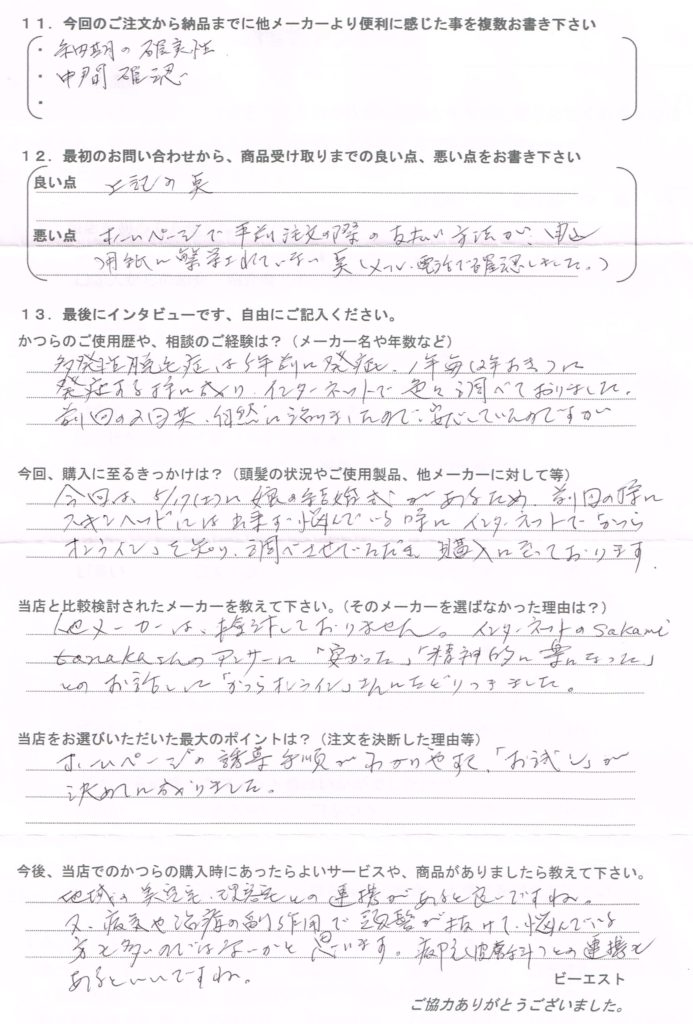 １１．今回のご注文から納品までに他メーカーより便利に感じた事を複数お書き下さい
・納期の確実性
・中間確認
・
１２．最初のお問い合わせから、商品受け取りまでの良い点、悪い点をお書き下さい
良い点 上記の点
悪い点 ホームページで事前注文の際の支払い方法が、申込
用紙に繁栄されていない点（メール、電話で確認しました。）
１３．最後にインタビューです、自由にご記入ください。
かつらのご使用歴や、相談のご経験は？（メーカー名や年数など）
多発性脱毛症は5年前に発症し、1年毎、2年おきつに
発症する様になり、インターネットで色々調べておりました。
前回の2回共、自然に治りましたので、安心していたのですが
今回、購入に至るきっかけは？（頭髪の状況やご使用製品、他メーカーに対して等）
今回は、5/17(土)に娘の結婚式があるため、前回の様に
スキンヘッドには出来ず悩んでいる時にインターネットで「かつら
オンライン」を知り、調べさせていただき購入に至っております。
当店と比較検討されたメーカーを教えて下さい。（そのメーカーを選ばなかった理由は？）
他メーカーは、検討しておりません。インターネットのsakami
tanakaさんのアンサーに「安かった」「精神的に楽になった」
とのお話しで「かつらオンライン」さんにたどりつきました。
当店をお選びいただいた最大のポイントは？（注文を決断した理由等）
ホームページの誘導手順がわかりやすく、「お試し」が
決めてになりました。
今後、当店でのかつらの購入時にあったらよいサービスや、商品がありましたら教えて下さい。
地域の美容室、理容室との連携があると良いですね。
又、病気や治療の副作用で頭髪が抜けて悩んでいる
方も多いのではないかと思います。病院（皮膚科）との連携も
あるといいですね。
ビーエスト
ご協力ありがとうございました。